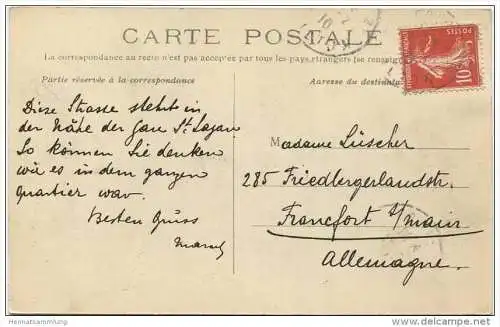 CARTE POSTALE
La correspondance au recto n'est pas acceptée par tous les pays étrangers (se renseign
Partie réservée à la correspondance
Adresse du destinata
Diese Strasse steht in
der Nähe der Gare St Lazare
So können Sie denken
wie es in dem ganzen
Quartier war.
Besten Gruss
Marcel
M
Madame Lüscher
285 Friedlergerlandstr.
Francfort s/main
Allemagne.
10
Heimatsammlung
www.delcampe.net